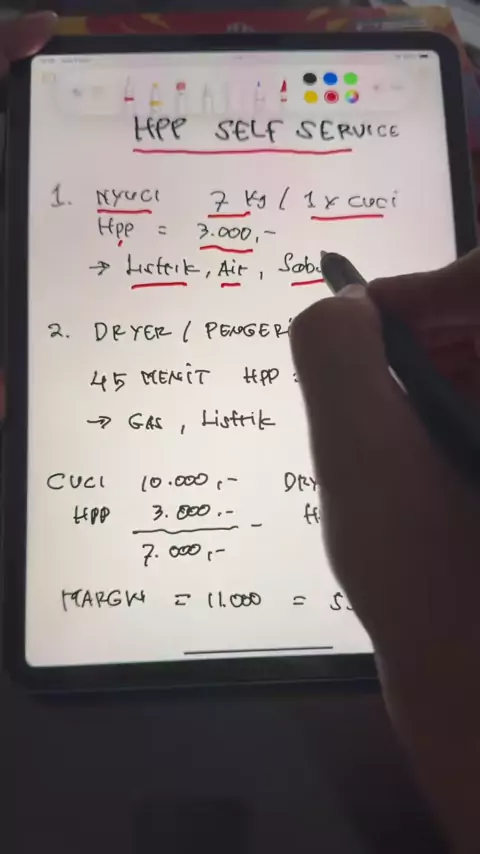 HPP SELF SERVICE
1. NYUCI 7 Kg / 1 x CUCI
HPP = 3.000,-
→ Listrik, Air,
2. DRYER /
45 MENIT HPP =
→ GAS, Listrik
CUCI 10.000,-
HPP 3.000.- -
7.000,-
MARGIN = 11.000 =